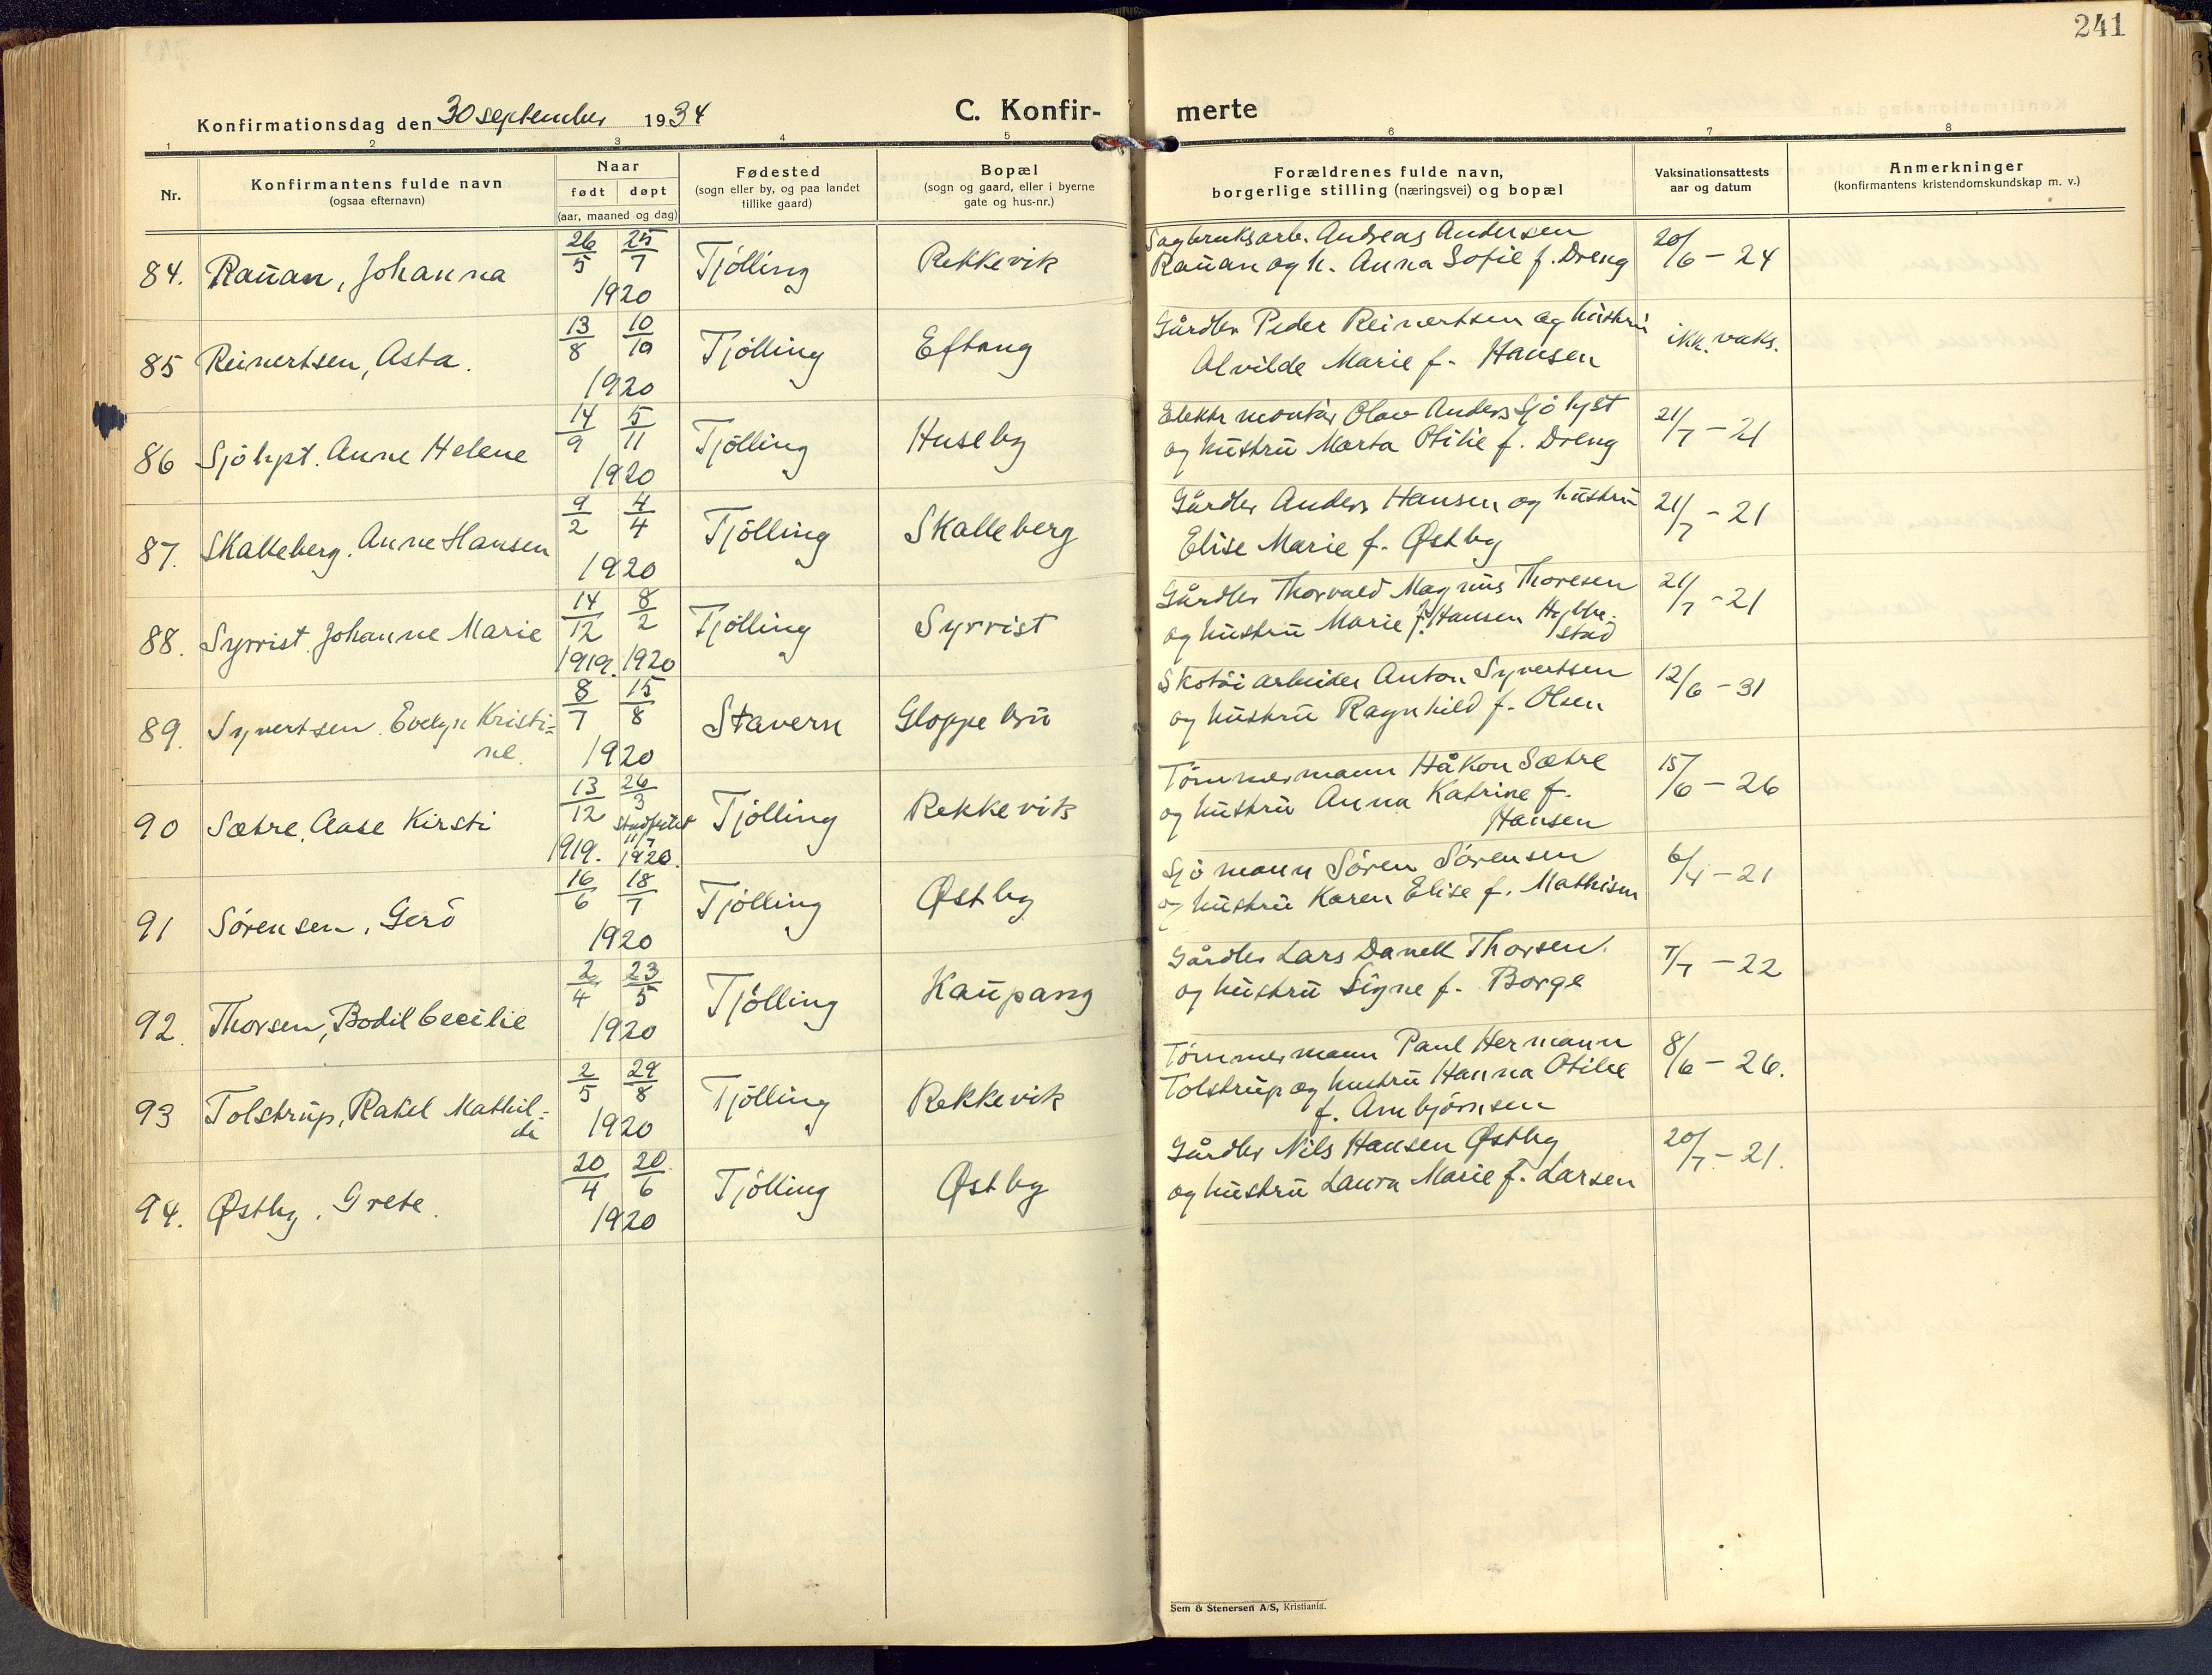 241
Konfirmationsdag den 30 september 1934
C. Konfir-
merte
1 2 3 4 5 6 7 8
Nr.
Konfirmantens fulde navn
(ogsaa efternavn)
Naar
født døpt
(aar, maaned og dag)
Fødested
(sogn eller by, og paa landet
tillike gaard)
Bopæl
(sogn og gaard, eller i byerne
gate og hus-nr.)
Forældrenes fulde navn,
borgerlige stilling (næringsvei) og bopæl
Vaksinationsattests
aar og datum
Anmerkninger
(konfirmantens kristendomskundskap m. v.)
84. Rauan, Johanna 26/5 25/7 1920 Tjølling Rekkevik
Sagbruksarb. Andreas Andersen
Rauan og h. Anna Sofie f. Dreng 20/6 - 24
85 Reinertsen, Asta. 13/8 10/10 1920 Tjølling Eftang
Gårdbr Peder Reinertsen og hustru
Alvilde Marie f. Hansen ikk. vaks.
86 Sjölyst. Anne Helene 14/9 5/11 1920 Tjølling Huseby
Elektr montör Olav Anders Sjö lyst
og hustru Marta Otilie f. Dreng 21/7 - 21
87. Skalleberg. Anne Hansen 9/2 4/4 1920 Tjølling Skalleberg
Gårdbr Anders Hansen og hustru
Elise Marie f. Østby 21/7 - 21
88. Syrrist. Johanne Marie 14/12 1919. 8/2 1920 Tjølling Syrrist
Gårdbr Thorvald Magnus Thoresen
og hustru Marie f. Hansen Hybbe-
stad 21/7 - 21
89. Syvertsen. Evelyn Kristi=
ne. 8/7 15/8 1920 Stavern Gloppe bru
Skotöi arbeider Anton Syvertsen
og hustru Ragnhild f. Olsen 12/6 - 31
90 Sætre, Aase Kirsti 13/12 1919. 26/3 stadfestet 11/7 1920. Tjølling Rekkevik
Tömmermann Håkon Sætre
og hustru Anna Katrine f.
Hansen 15/6 - 26
91 Sörensen, Gerd 16/6 18/7 1920 Tjølling Østby
Sjömann Sören Sörensen
og hustru Karen Elise f. Mathisen 6/4 - 21
92. Thorsen, Bodil Cecilie 2/4 23/5 1920 Tjølling Kaupang
Gårdbr Lars Danell Thorsen.
og hustru Signe f. Borge 7/7 - 22
93 Tolstrup, Rakel Mathil-
de 2/5 29/8 1920 Tjølling Rekkevik
Tömmermann Paul Hermann
Tolstrup og hustru Hanna Otilie
f. Arnbjörnsen 8/6 - 26.
94. Østby. Grete. 20/4 20/6 1920 Tjølling Østby
Gårdbr Nils Hansen Østby
og hustru Laura Marie f. Larsen 20/7 - 21.
Sem & Stenersen A/S, Kristiania.